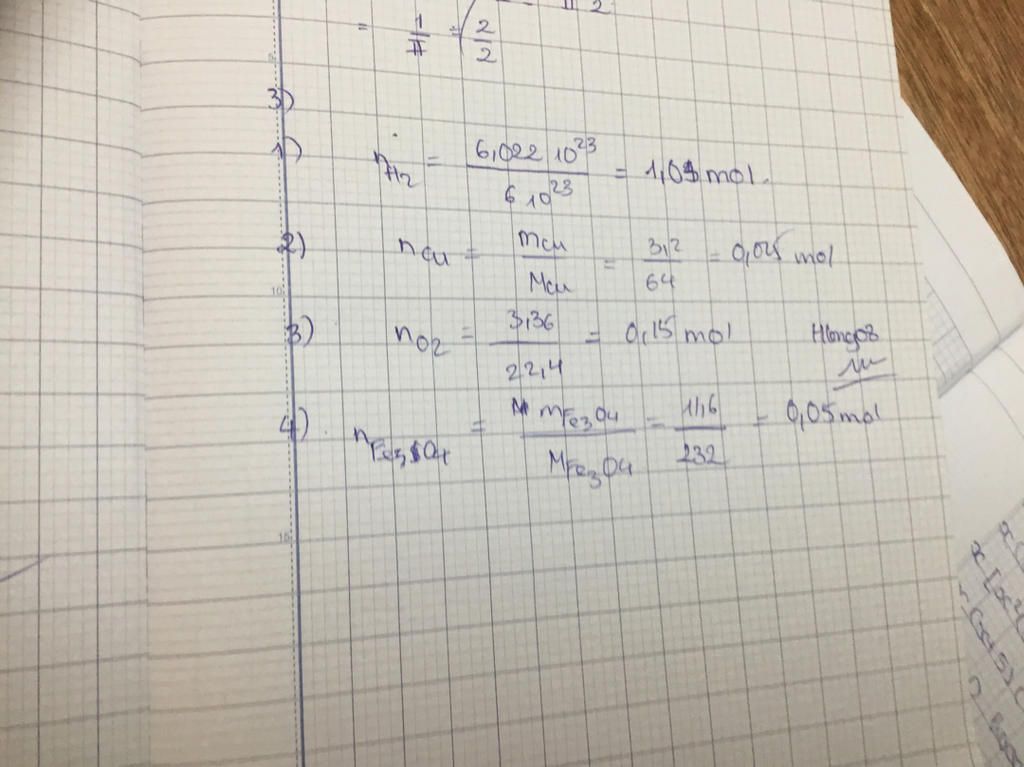 = 1/π = 2/2
3)
1) n H2 = 6,022 10^23 / 6 10^23 = 1,03 mol.
2) n Cu = m Cu / M Cu = 3,2 / 64 = 0,05 mol
3) n O2 = 3,36 / 22,4 = 0,15 mol
4) n Fe3O4 = m Fe3O4 / M Fe3O4 = 11,6 / 232 = 0,05 mol
10
15